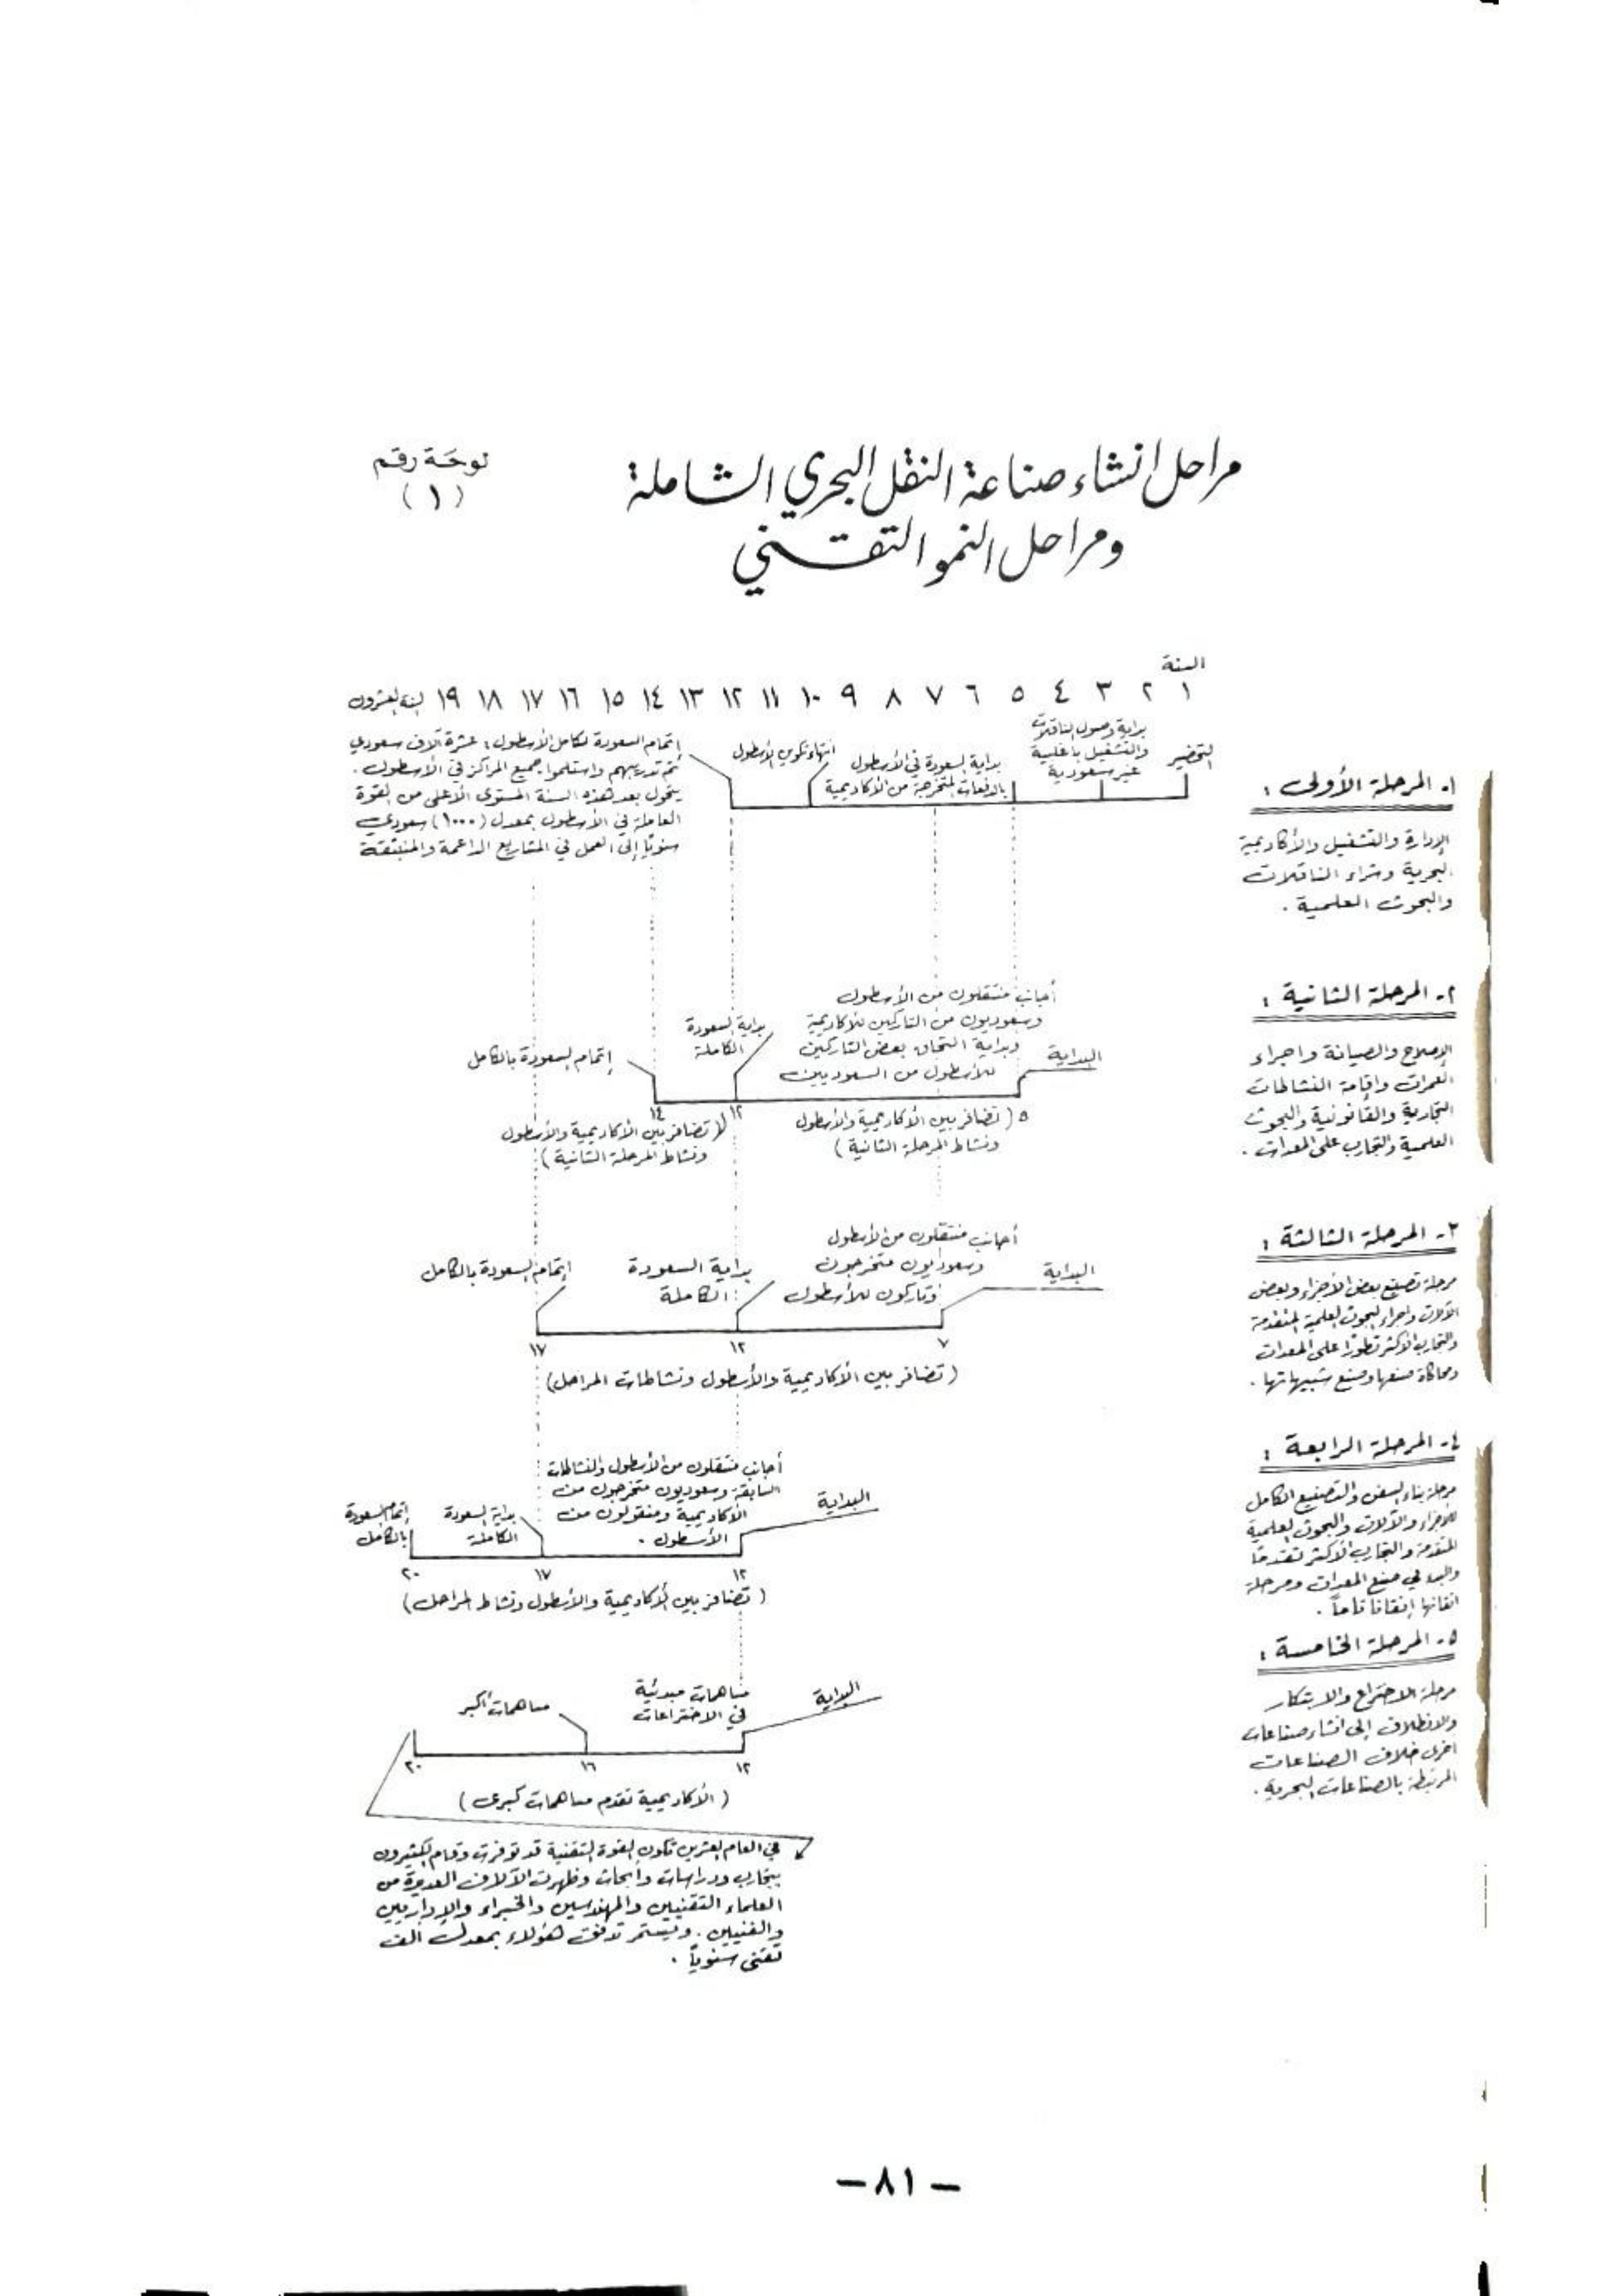 مراحل انشاء صناعة النقل البحري الشاملة
ومراحل النمو التقني
لوحة رقم
(١)
السنة
١ ٢ ٣ ٤ ٥ ٦ ٧ ٨ ٩ ١٠ ١١ ١٢ ١٣ ١٤ ١٥ ١٦ ١٧ ١٨ ١٩ السنة العشرون
١ـ المرحلة الأولى :
الإدارة والتشغيل والأكاديمية
البحرية وشراء الناقلات
والبحوث العلمية .
التحضير
بداية وصول الناقلات
والتشغيل بأغلبية
غير سعودية
بداية السعودة في الأسطول
بالدفعات المتخرجة من الأكاديمية
انتهاء تكوين الأسطول
إتمام السعودة لكامل الأسطول : عشرة آلاف سعودي
تم تدريبهم واستلموا جميع المراكز في الأسطول .
يتحول بعد هذه السنة المستوى الأعلى من القوة
العاملة في الأسطول بمعدل (١٠٠٠) سعودي
سنوياً إلى العمل في المشاريع الداعمة والمنبثقة
٢ـ المرحلة الثانية :
الإصلاح والصيانة واجراء
العمرات وإقامة النشاطات
التجارية والقانونية والبحوث
العلمية والتجارب على المعدات .
البداية
أجانب منتقلون من الأسطول
وسعوديون من التاركين للأكاديمية
وبداية التحاق بعض التاركين
للأسطول من السعوديين
بداية السعودة
الكاملة
إتمام السعودة بالكامل
٥ ١٢ ١٤
(تضافر بين الأكاديمية والأسطول
ونشاط المرحلة الثانية)
(تضافر بين الأكاديمية والأسطول
ونشاط المرحلة الثانية)
٣ـ المرحلة الثالثة :
مرحلة تصنيع بعض الأجزاء وبعض
الآلات واجراء البحوث العلمية المتقدمة
والتجارب الأكثر تطوراً على المعدات
ومحاكاة صنعها وصنع شبيهاتها .
البداية
أجانب منتقلون من الأسطول
وسعوديون متخرجون
وتاركون للأسطول
بداية السعودة
الكاملة
إتمام السعودة بالكامل
٧ ١٢ ١٧
(تضافر بين الأكاديمية والأسطول ونشاطات المراحل)
٤ـ المرحلة الرابعة :
مرحلة بناء السفن والتصنيع الكامل
للأجزاء والآلات والبحوث العلمية
المتقدمة والتجارب الأكثر تقدماً
والبدء في صنع المعدات ومرحلة
اتقانها إتقاناً تاماً .
البداية
أجانب منتقلون من الأسطول والنشاطات
السابقة وسعوديون متخرجون من
الأكاديمية ومنقولون من
الأسطول .
بداية السعودة
الكاملة
إتمام السعودة
بالكامل
١٢ ١٧ ٢٠
(تضافر بين الأكاديمية والأسطول ونشاط المراحل)
٥ـ المرحلة الخامسة :
مرحلة الاختراع والابتكار
والانطلاق إلى انشاء صناعات
اخرى خلاف الصناعات
المرتبطة بالصناعات البحرية .
البداية
مساهمات مبدئية
في الاختراعات
مساهمات أكبر
١٢ ١٦ ٢٠
(الأكاديمية تقدم مساهمات كبرى)
في العام العشرين تكون القوة التقنية قد توفرت وقام الكثيرون
بتجارب ودراسات وأبحاث وظهرت الآلاف العديدة من
العلماء التقنيين والمهندسين والخبراء والإداريين
والفنيين . ويستمر تدفق هؤلاء بمعدل ألف
تقني سنوياً .
— ٨١ —